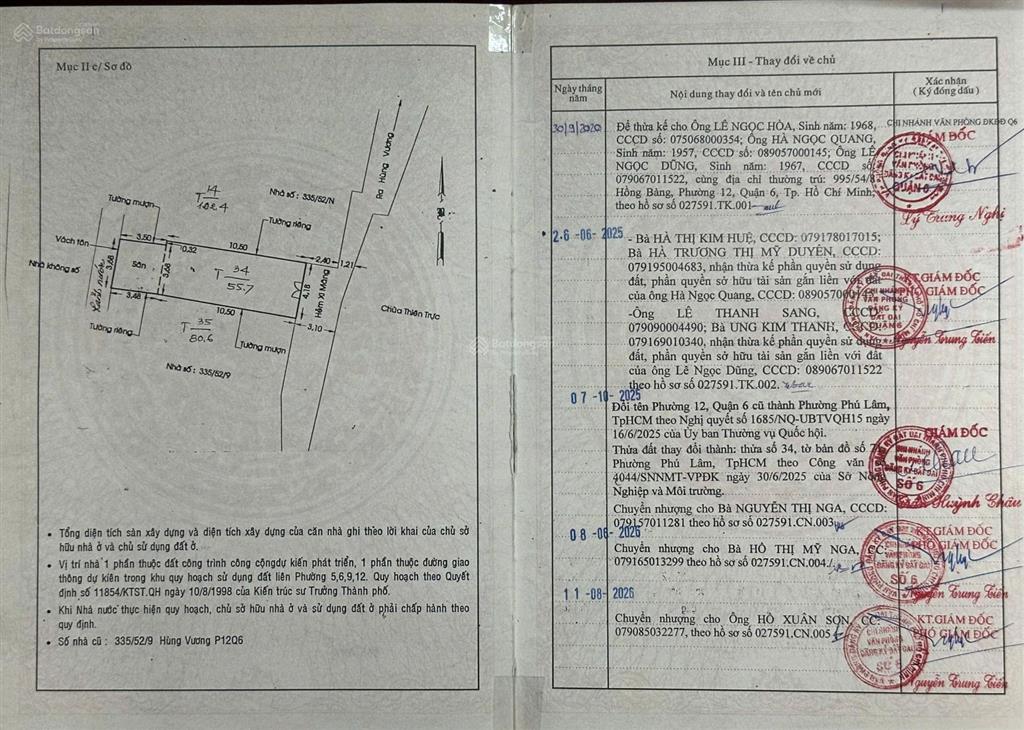 Batdongsan
by PropertyGuru
Mục II c/ Sơ đồ
Ra Hùng Vương
T 14
102.4
Nhà số : 335/52/N
Tường mượn
Tường riêng
Vách tôn
3,50
0,32
10,50
2,40
1,21
Nhà không số
3,68
Sân
3,68
T 34
55.7
4,16
Hẻm Xi Măng
Chùa Thiên Trực
3,48
10,50
3,10
Tường riêng
T 35
80.6
Tường mượn
Nhà số : 335/52/9
Batdongsan
• Tổng diện tích sàn xây dựng và diện tích xây dựng của căn nhà ghi thèo lời khai của chủ sở
hữu nhà ở và chủ sử dụng đất ở.
• Vị trí nhà 1 phần thuộc đất công trình công cộngdự kiến phát triển, 1 phần thuộc đường giao
thông dự kiến trong khu quy hoạch sử dụng đất liên Phường 5,6,9,12. Quy hoạch theo Quyết
định số 11854/KTST.QH ngày 10/8/1998 của Kiến trúc sư Trưởng Thành phố.
• Khi Nhà nước thực hiện quy hoạch, chủ sở hữu nhà ở và sử dụng đất ở phải chấp hành theo
quy định.
• Số nhà cũ : 335/52/9 Hùng Vương P12Q6
Mục III - Thay đổi về chủ
Ngày tháng
năm
Nội dung thay đổi và tên chủ mới
Xác nhận
( Ký đóng dấu )
30/9/2020
Để thừa kế cho Ông LÊ NGỌC HÒA, Sinh năm: 1968,
CCCD số: 075068000354; Ông HÀ NGỌC QUANG,
Sinh năm: 1957, CCCD số: 089057000145; Ông LÊ
NGỌC DŨNG, Sinh năm: 1967, CCCD số:
079067011522, cùng địa chỉ thường trú: 995/54/8
Hồng Bàng, Phường 12, Quận 6, Tp. Hồ Chí Minh;
theo hồ sơ số 027591.TK.001
CHI NHÁNH VĂN PHÒNG ĐKĐĐ Q6
GIÁM ĐỐC
QUẬN 6
Lý Trung Nghị
26-06-2025
- Bà HÀ THỊ KIM HUỆ, CCCD: 079178017015;
Bà HÀ TRƯƠNG THỊ MỸ DUYÊN, CCCD:
079195004683, nhận thừa kế phần quyền sử dụng
đất, phần quyền sở hữu tài sản gắn liền với đất
của ông Hà Ngọc Quang, CCCD: 089057000145
-Ông LÊ THANH SANG, CCCD:
079090004490; Bà UNG KIM THANH, CCCD:
079169010340, nhận thừa kế phần quyền sử dụng
đất, phần quyền sở hữu tài sản gắn liền với đất
của ông Lê Ngọc Dũng, CCCD: 089067011522
theo hồ sơ số 027591.TK.002.
KT.GIÁM ĐỐC
PHÓ GIÁM ĐỐC
CHI NHÁNH
VĂN PHÒNG
ĐĂNG KÝ
ĐẤT ĐAI
QUẬN 6
Nguyễn Trung Tiến
07-10-2025
Đổi tên Phường 12, Quận 6 cũ thành Phường Phú Lâm,
TpHCM theo Nghị quyết số 1685/NQ-UBTVQH15 ngày
16/6/2025 của Ủy ban Thường vụ Quốc hội.
Thửa đất thay đổi thành: thửa số 34, tờ bản đồ số
Phường Phú Lâm, TpHCM theo Công văn
4044/SNNMT-VPĐK ngày 30/6/2025 của Sở Nông
Nghiệp và Môi trường.
Chuyển nhượng cho Bà NGUYỄN THỊ NGA, CCCD:
079157011281 theo hồ sơ số 027591.CN.003
GIÁM ĐỐC
CHI NHÁNH
VĂN PHÒNG
ĐĂNG KÝ ĐẤT ĐAI
SỐ 6
Huỳnh Châu
Chuyển nhượng cho Bà HỒ THỊ MỸ NGA, CC:
079165013299 theo hồ sơ số 027591.CN.004
KT.GIÁM ĐỐC
PHÓ GIÁM ĐỐC
ĐĂNG KÝ ĐẤT ĐAI
SỐ 6
Nguyễn Trung Tiến
11-08-2026
Chuyển nhượng cho Ông HỒ XUÂN SƠN, CC:
079085032277, theo hồ sơ số 027591.CN.005
KT.GIÁM ĐỐC
PHÓ GIÁM ĐỐC
CHI NHÁNH
VĂN PHÒNG
ĐĂNG KÝ ĐẤT ĐAI
SỐ 6
Nguyễn Trung Tiến